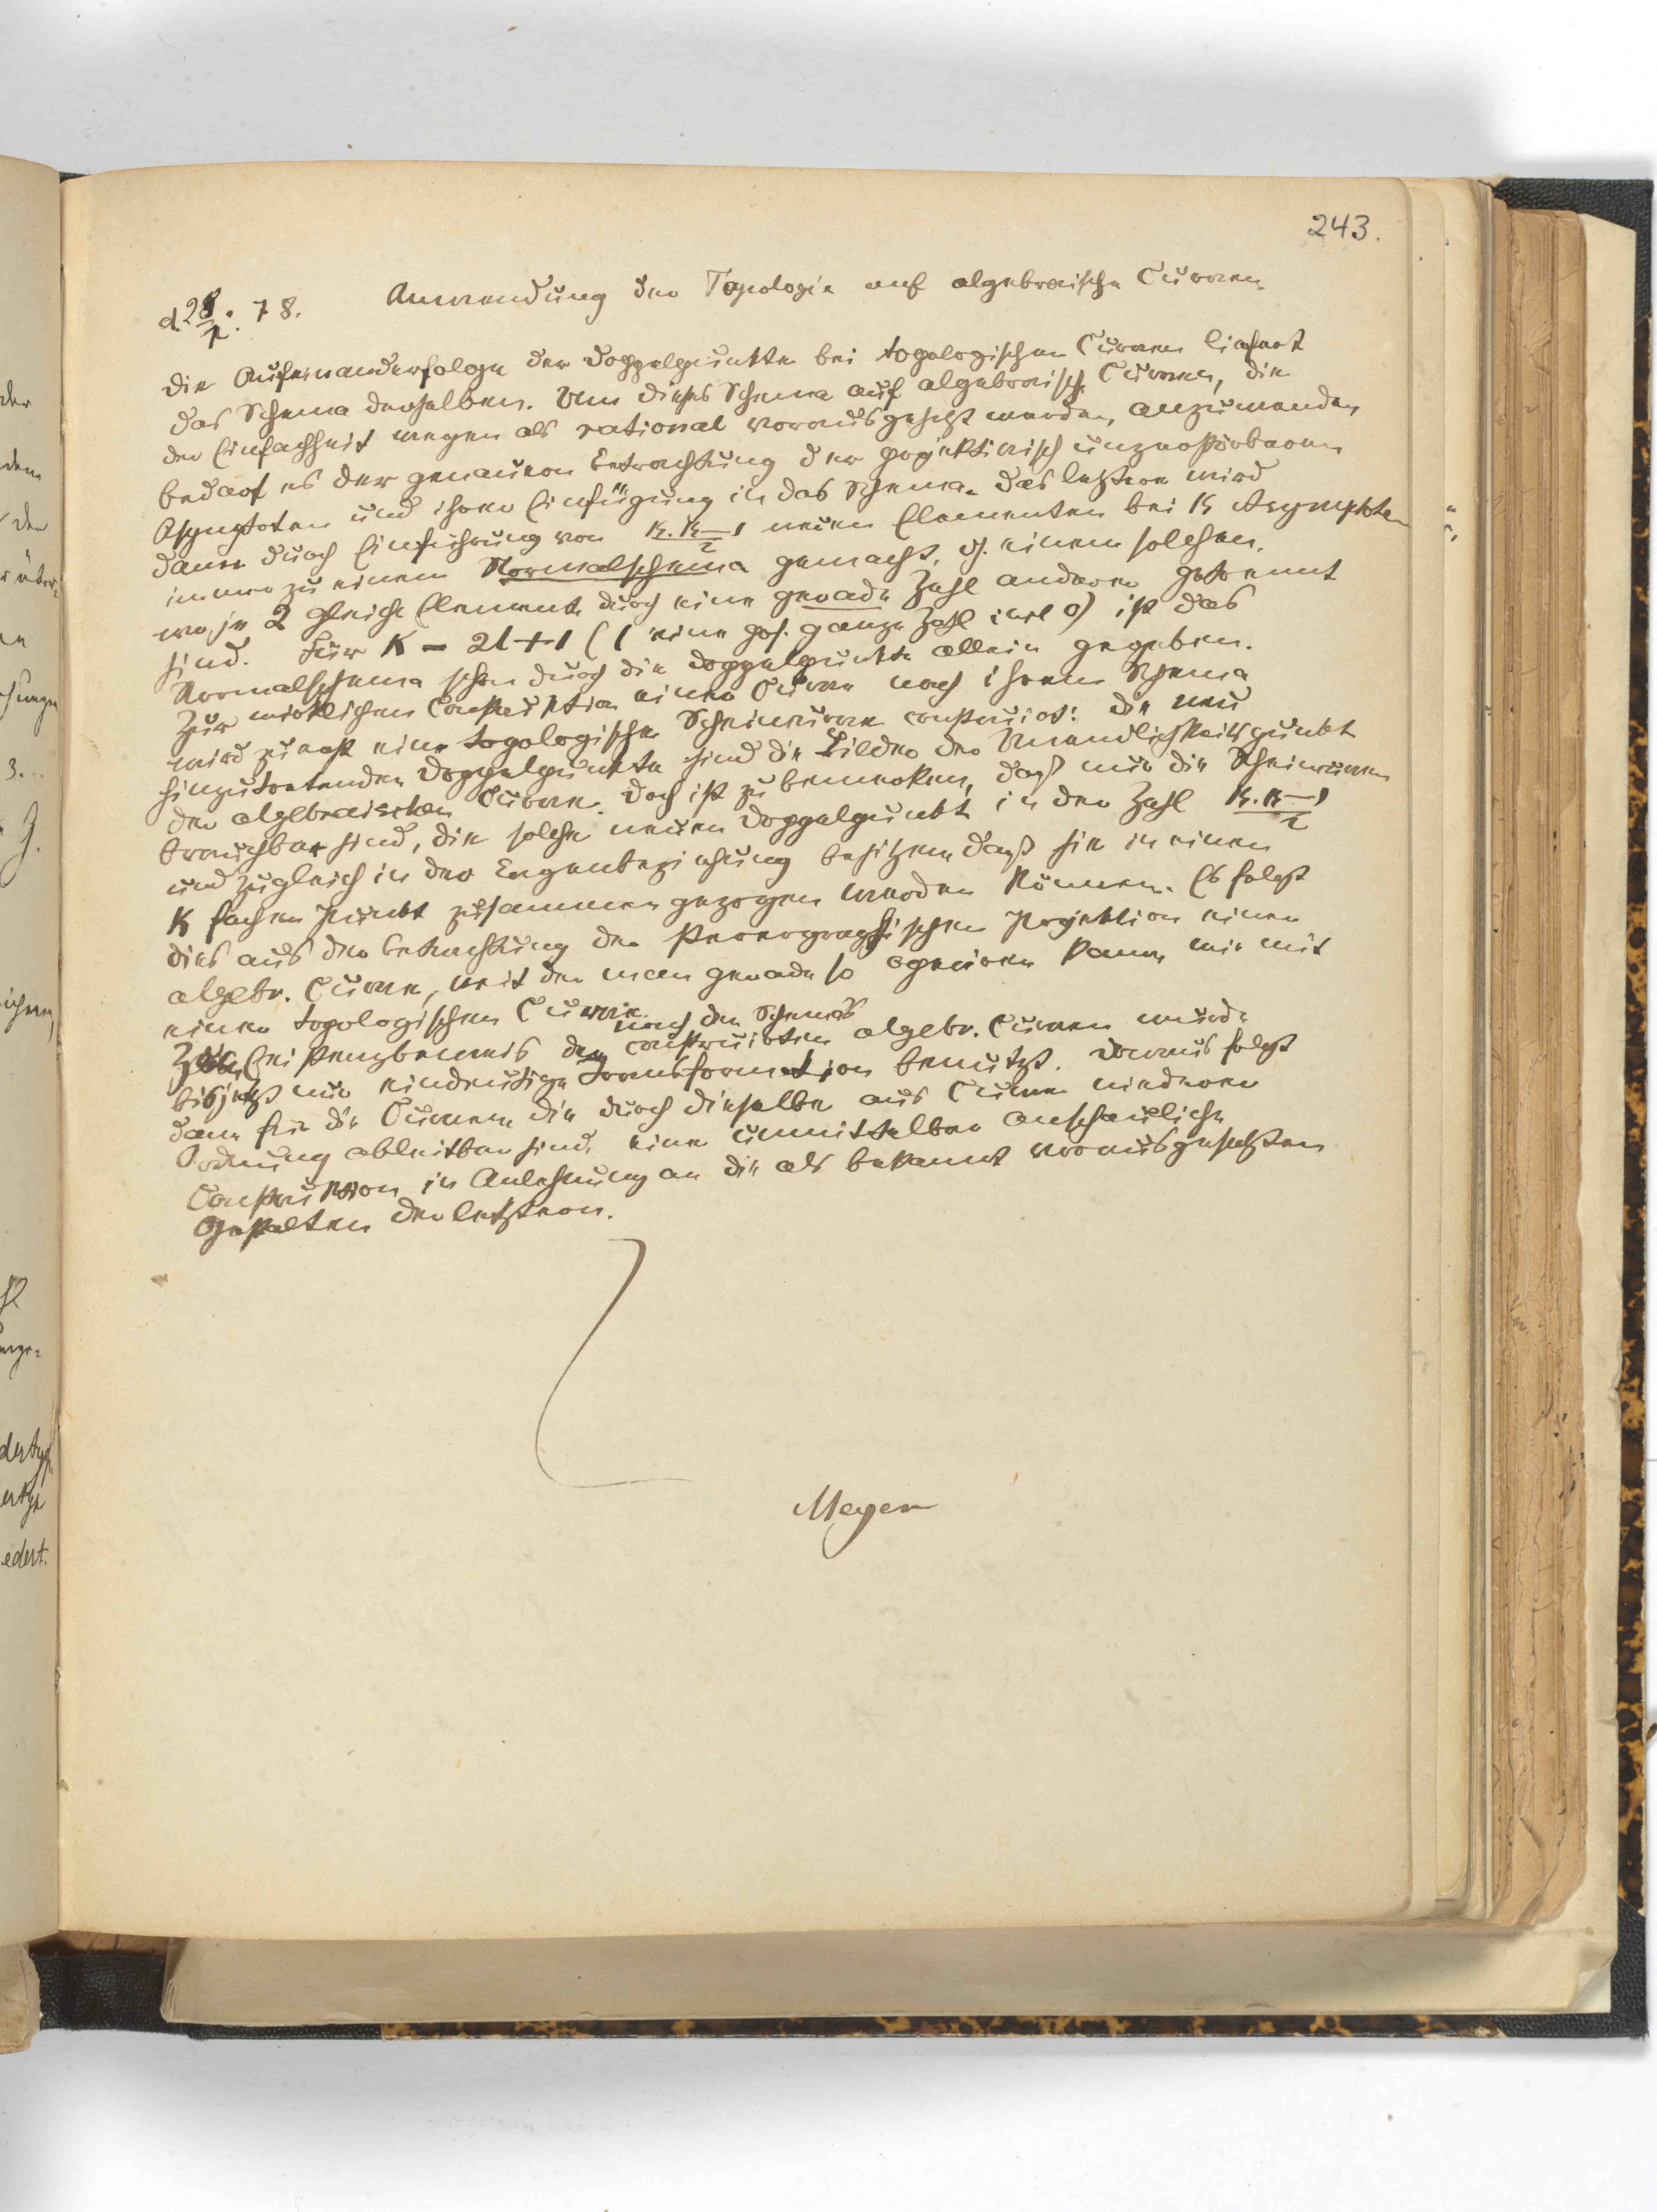 243.
d. 28/1. 78. Anwendung der Topologie auf algebraische Curven
Die Aufeinanderfolge der Doppelpunkte bei topologischen Curven liefert
das Schema derselben. Um dieses Schema auf algebraische Curven, die
der Einfachheit wegen als rational vorausgesetzt werden, anzuwenden
bedarf es der genauern Betrachtung der projektivisch unzerstörbaren
Asymptoten und ihrer Einfügung in das Schema. Das letztere wird
dann durch Einführung von K.K–1/2 neuen Elementen bei K Asymptoten
immer zu einem Normalschema gemacht, d. einem solchen,
wo je 2 gleiche Elemente durch eine gerade Zahl anderer getrennt
sind. Für K = 2l+1 (l eine pos. ganze Zahl incl 0) ist das
Normalschema schon durch die Doppelpunkte allein gegeben.
Zur wirklichen Construktion einer Curve nach ihrem Schema
wird zunächst eine topologische Scheincurve construirt: die neu
hinzutretenden Doppelpunkte sind die Bilder der Unendlichkeitspunkte
der algebraischen Curve. Doch ist zu bemerken, daß nur die Scheincurven
brauchbar sind, die solche neuen Doppelpunkte in der Zahl K.K–1/2
und zugleich in der Lagenbeziehung besitzen, daß sie in einen
K fachen Punkt zusammengezogen werden können. Es folgt
dies aus der Betrachtung der stereographischen Projektion einer
algebr. Curve, mit der man gerade so operiren kann, wie mit
einer topologischen Curve.
Zum Existenzbeweis der nach den Schemas construirten algebr. Curven wurde
bis jetzt nur eindeutige Transformation benutzt. Daraus folgt
dann für die Curven, die durch dieselbe aus Curven niederer
Ordnung ableitbar sind, eine unmittelbar anschauliche
Construktion in Anlehnung an die als bekannt vorausgesetzten
Gestalten der letztern.
Meyer